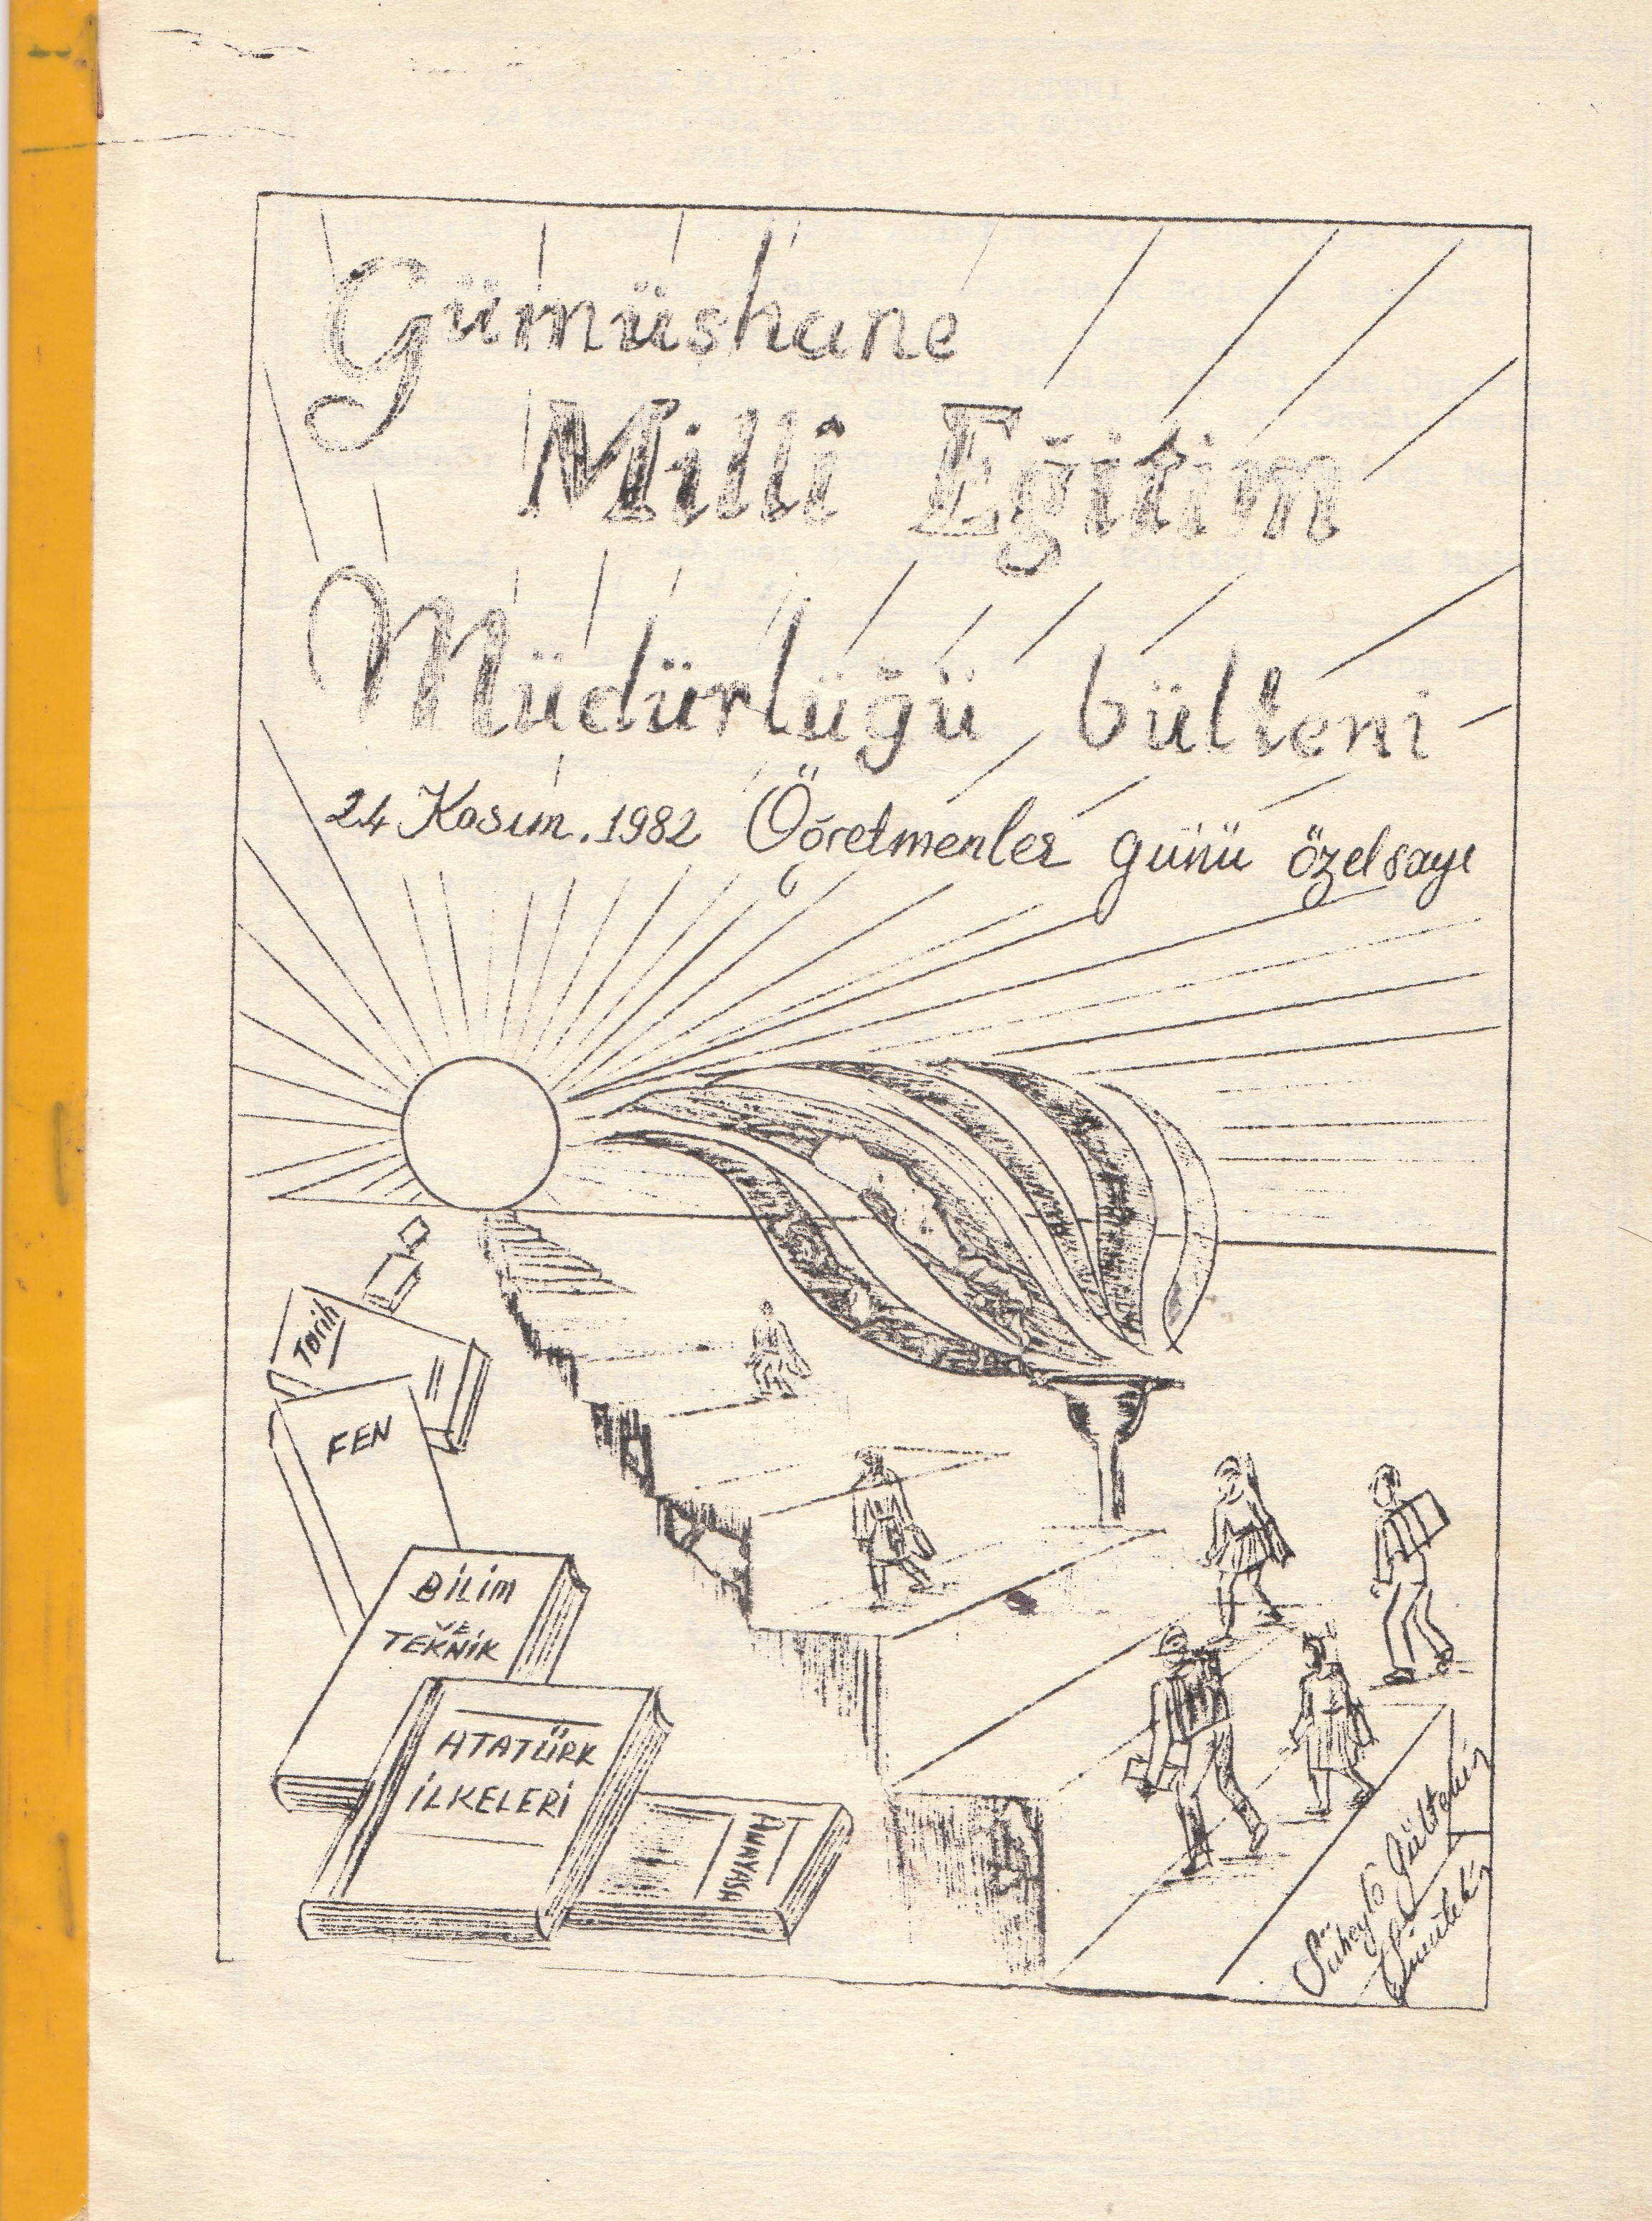 Gümüşhane
Millî Eğitim
Müdürlüğü bülteni
24 Kasım.1982 Öğretmenler günü özel sayı
Tarih
FEN
BİLİM
VE
TEKNİK
ATATÜRK
İLKELERİ
ANAYASA
Süheyla Gültekin